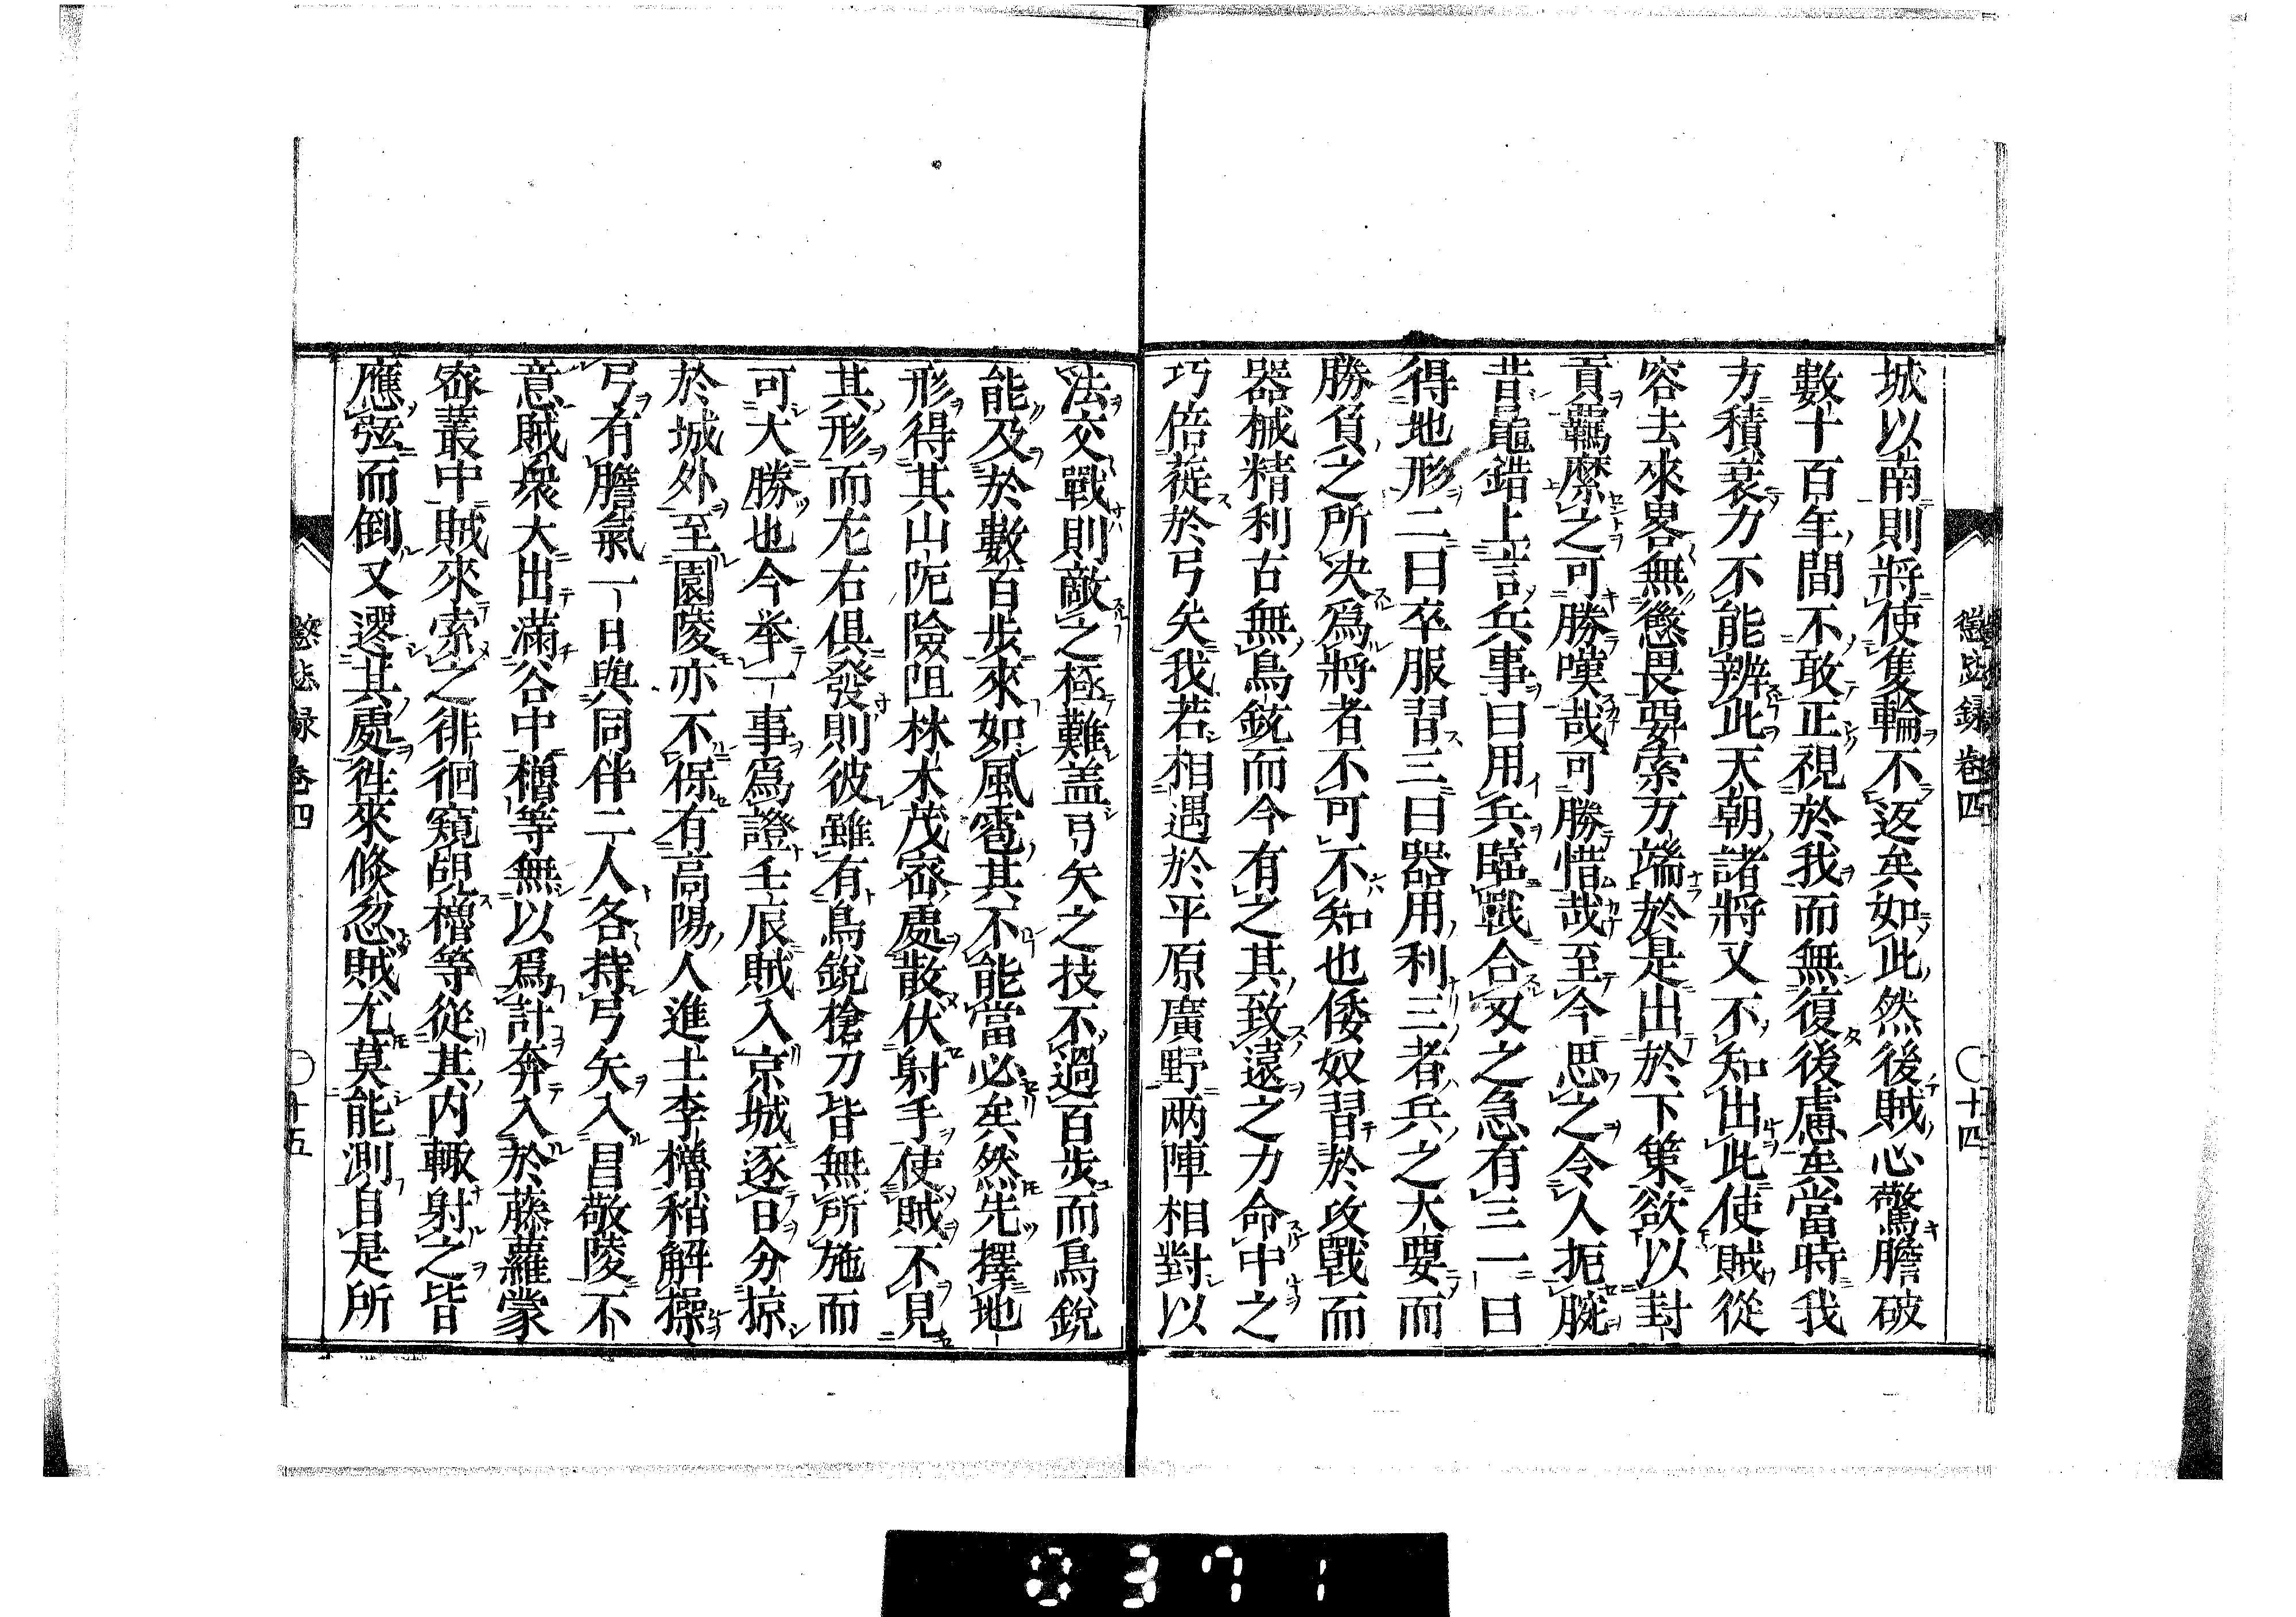 懲毖録卷四
〇十四
城以南則將使隻輪不返矣如此然後賊心驚膽破
數十百年間不敢正視於我而無復後慮矣當時我
方積衰力不能辨此天朝諸將又不知出此使賊從
容去來畧無懲畏要索万端於是出於下策欲以封
貢羈縻之可勝嘆哉可勝惜哉至今思之令人扼腕
昔鼂錯上言兵事曰用兵臨戰合刄之急有三一曰
得地形二曰卒服習三曰器用利三者兵之大要而
勝負之所决爲將者不可不知也倭奴習於攻戰而
器械精利古無鳥銃而今有之其致遠之力命中之
巧倍蓰於弓矢我若相遇於平原廣野兩陣相對以
法交戰則敵之極難盖弓矢之技不過百步而鳥銃
能及於數百步來如風雹其不能當必矣然先擇地
形得其山阨險阻林木茂宻處散伏射手使賊不見
其形而左右俱發則彼雖有鳥銃槍刀皆無所施而
可大勝也今举一事爲證壬辰賊入京城逐日分掠
於城外至園陵亦不保有高陽人進士李櫓稍解操
弓有膽氣一日與同伴二人各持弓矢入昌敬陵不
意賊衆大出滿谷中櫓等無以爲計奔入於藤蘿蒙
宻叢中賊來索之徘徊窺覘櫓等從其内輙射之皆
應弦而倒又遝其處徃來倐忽賊尤莫能測自是所
懲毖録卷四
〇十五
0371